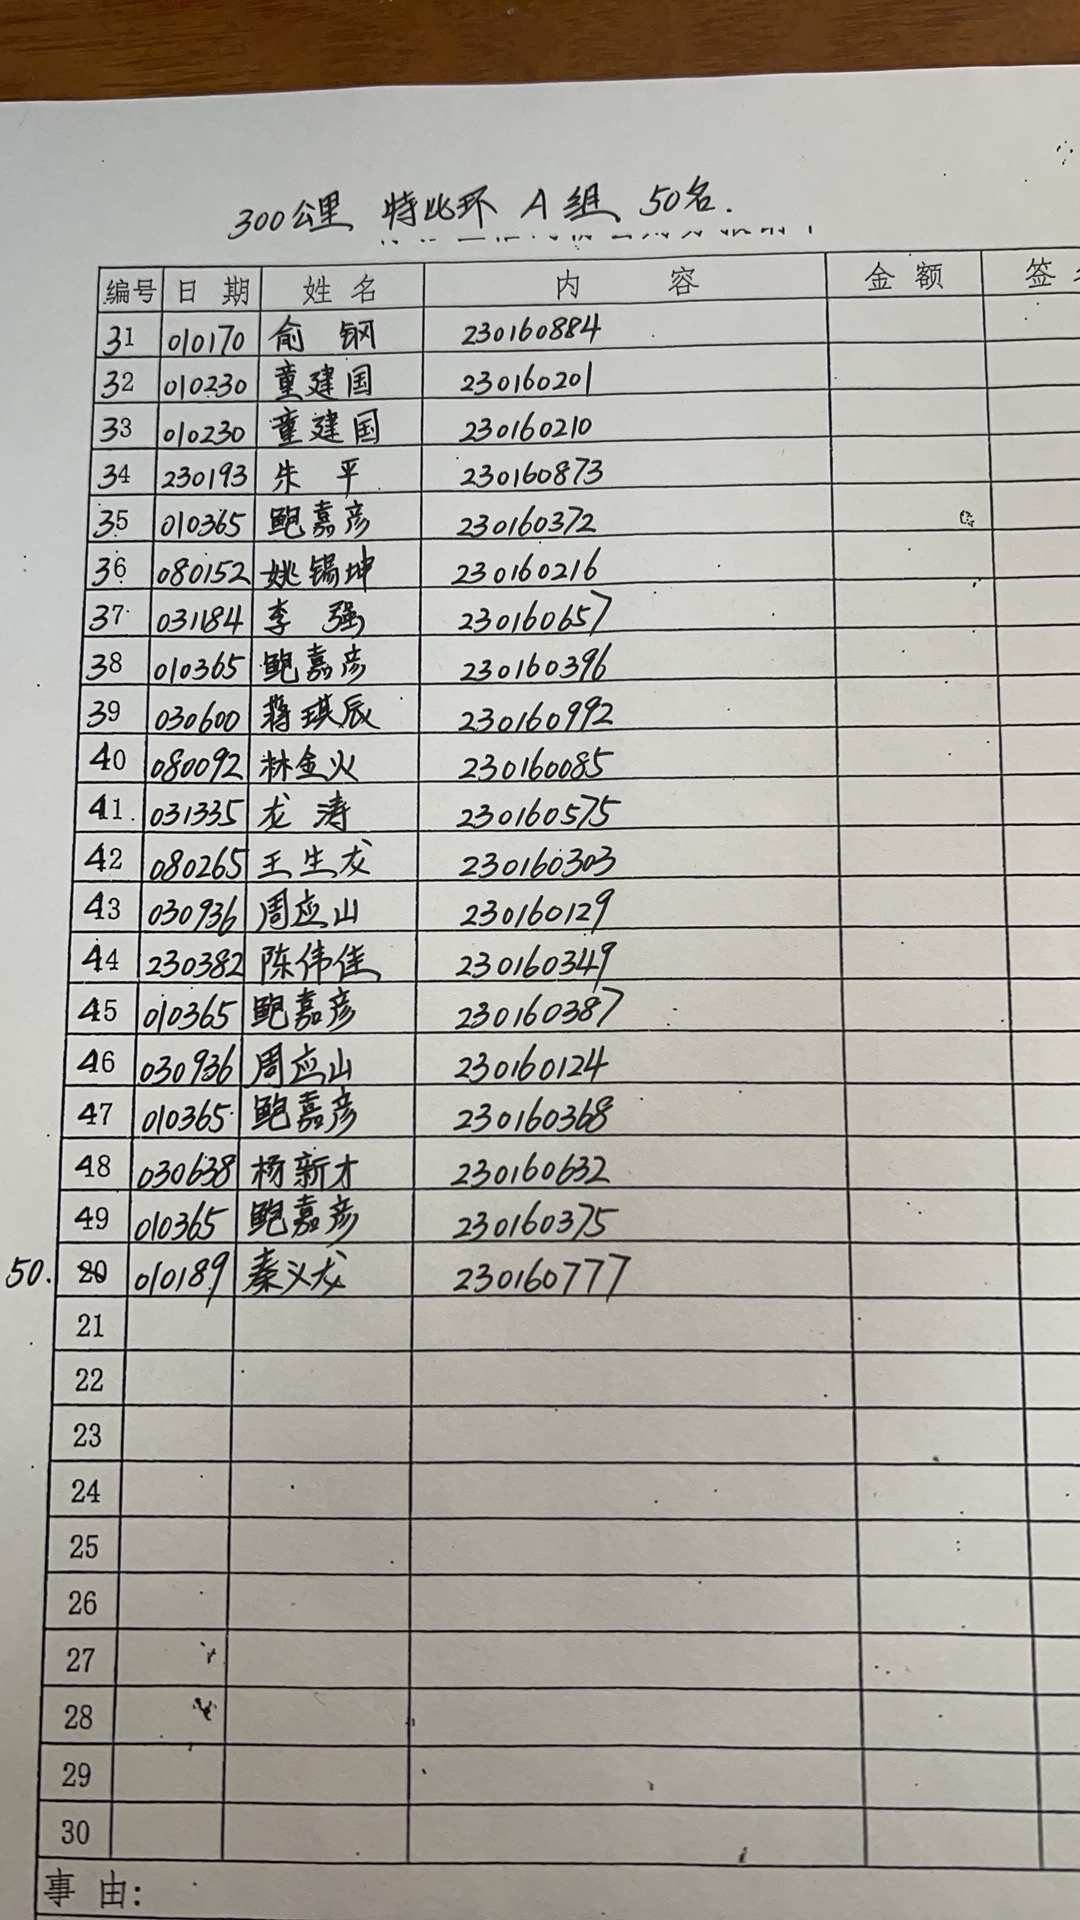 300公里 特比环 A组 50名.
编号 日期 姓名 内容 金额 签
31 010170 俞钢 230160884
32 010230 童建国 230160201
33 010230 童建国 230160210
34 230193 朱平 230160873
35 010365 鲍嘉彦 230160372
36 080152 姚锡坤 230160216
37 031184 李强 230160657
38 010365 鲍嘉彦 230160396
39 030600 蒋琪辰 230160992
40 080092 林金火 230160085
41. 031335 龙涛 230160575
42 080265 王生龙 230160303
43 030936 周应山 230160129
44 230382 陈伟佳 230160349
45 010365 鲍嘉彦 230160387
46 030936 周应山 230160124
47 010365 鲍嘉彦 230160368
48 030638 杨新才 230160632
49 010365 鲍嘉彦 230160375
50. 20 010189 秦义龙 230160777
21
22
23
24
25
26
27
28
29
30
事由: